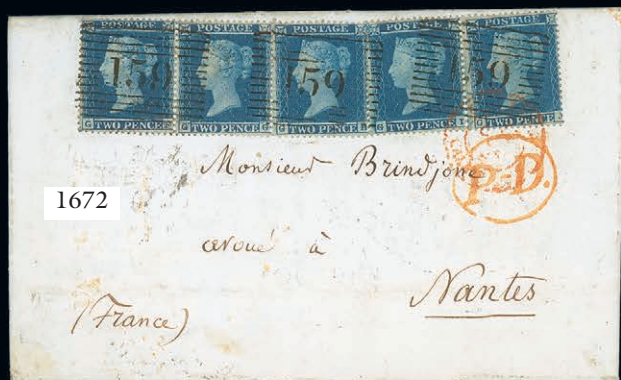 POSTAGE POSTAGE POSTAGE POSTAGE POSTAGE
159 159 159
TWO PENCE TWO PENCE TWO PENCE TWO PENCE TWO PENCE
Monsieur Brindjonc
P.D.
1672
avoué à
Nantes
(France)